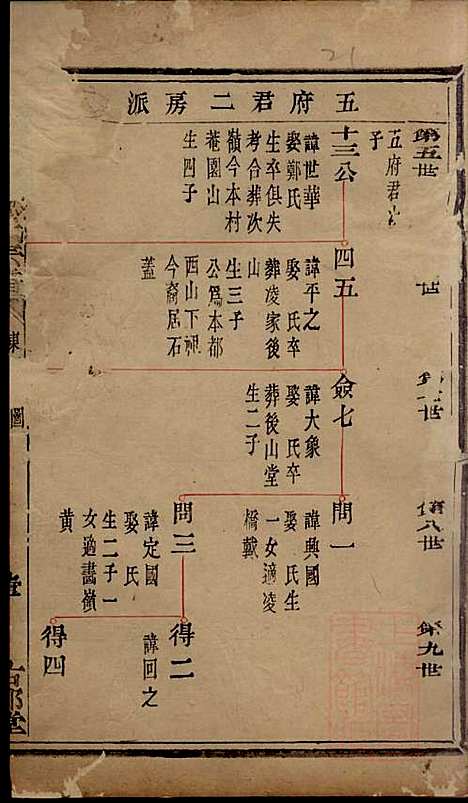 五府君二房派
第五世
五府君
子
十三公
諱世華
娶鄭氏
生卒俱失
考合葬次
嶺今本村
菴園山
生四子
世
四五
諱平之
娶 氏卒
葬凌家後
山
生三子
公爲本都
西山下
今裔居石
蓋
世
僉七
諱大象
娶 氏卒
葬後山堂
生二子
八世
問一
諱興國
娶 氏生
一女適凌
橋戴
問三
諱定國
娶 氏
生二子一
女適畵嶺
黄
第九世
得二
諱回之
得四
圖